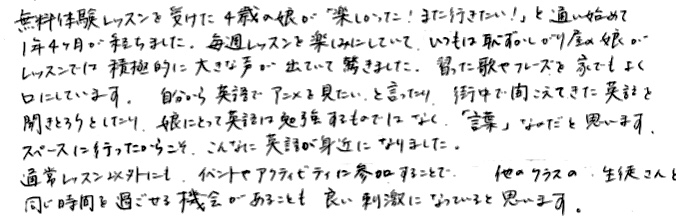 無料体験レッスンを受けた4歳の娘が「楽しかった！また行きたい！」と通い始めて
1年4ヶ月が経ちました。毎週レッスンを楽しみにしていて、いつもは恥ずかしがり屋の娘が
レッスンでは積極的に大きな声が出ていて驚きました。習った歌やフレーズを家でもよく
口にしています。自分から英語でアニメを見たいと言ったり、街中で聞こえてきた英語を
聞きとろうとしたり、娘にとって英語は勉強するものではなく、「言葉」なのだと思います。
スペースに行ったからこそ、こんなに英語が身近になりました。
通常レッスン以外にも、イベントやアクティビティに参加することで、他のクラスの生徒さんと
同じ時間を過ごせる機会があることも良い刺激になっていると思います。